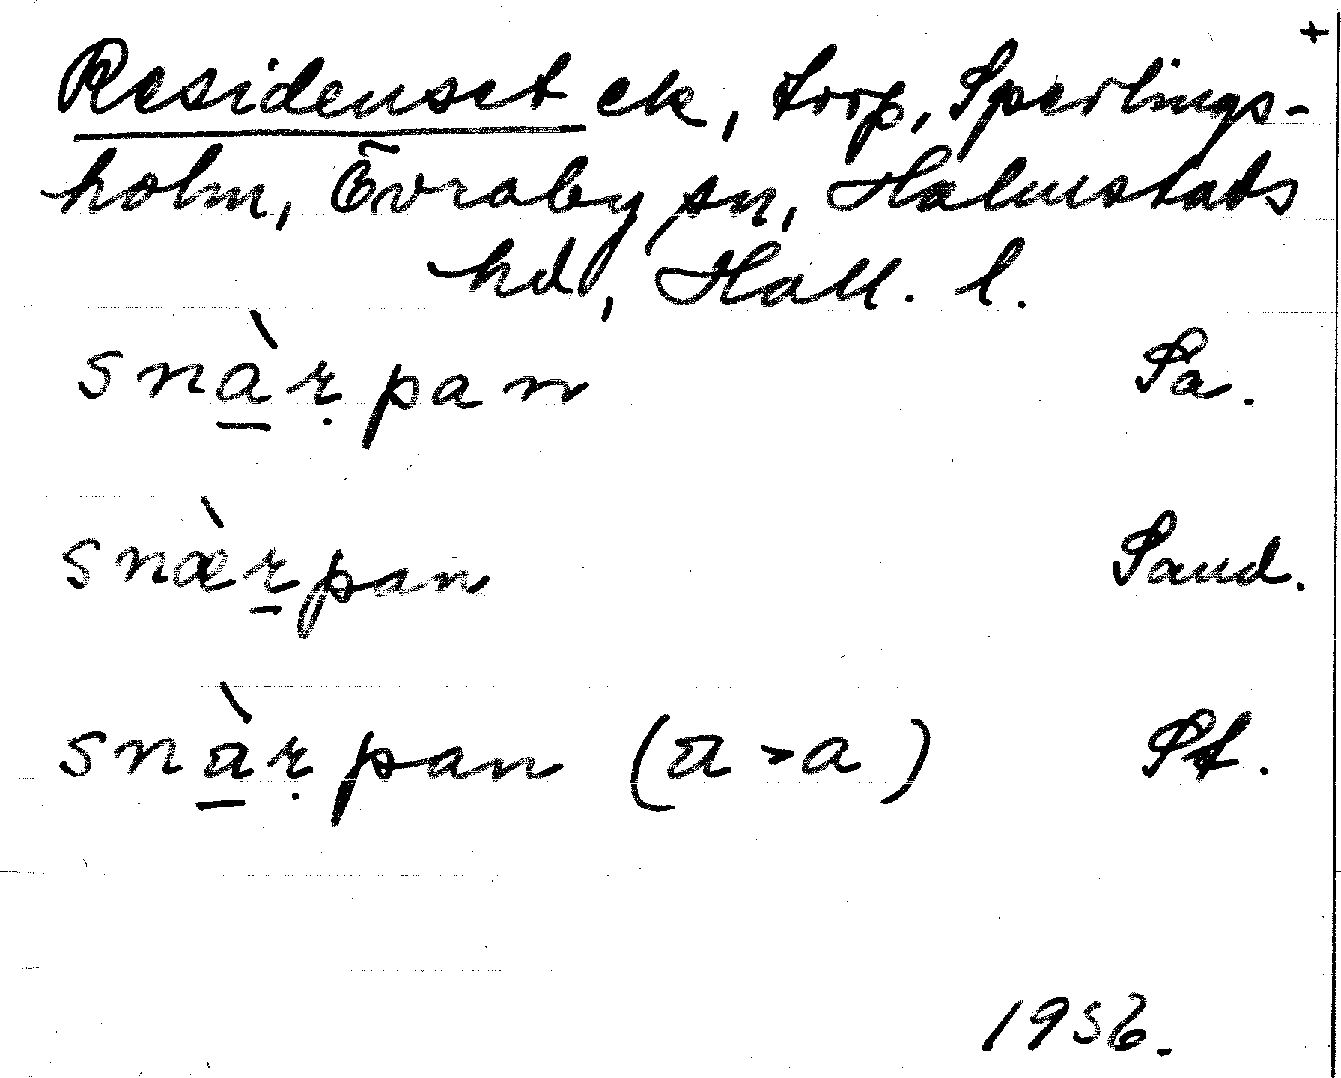 +
Residenset ek, torp, Sperlings-
holm, Övraby sn, Halmstads
hd, Hall. l.
snà̱ṛpan Sa.
snæ̀ṟpan Sand.
snà̱ṛpan (a > a) St.
1956.